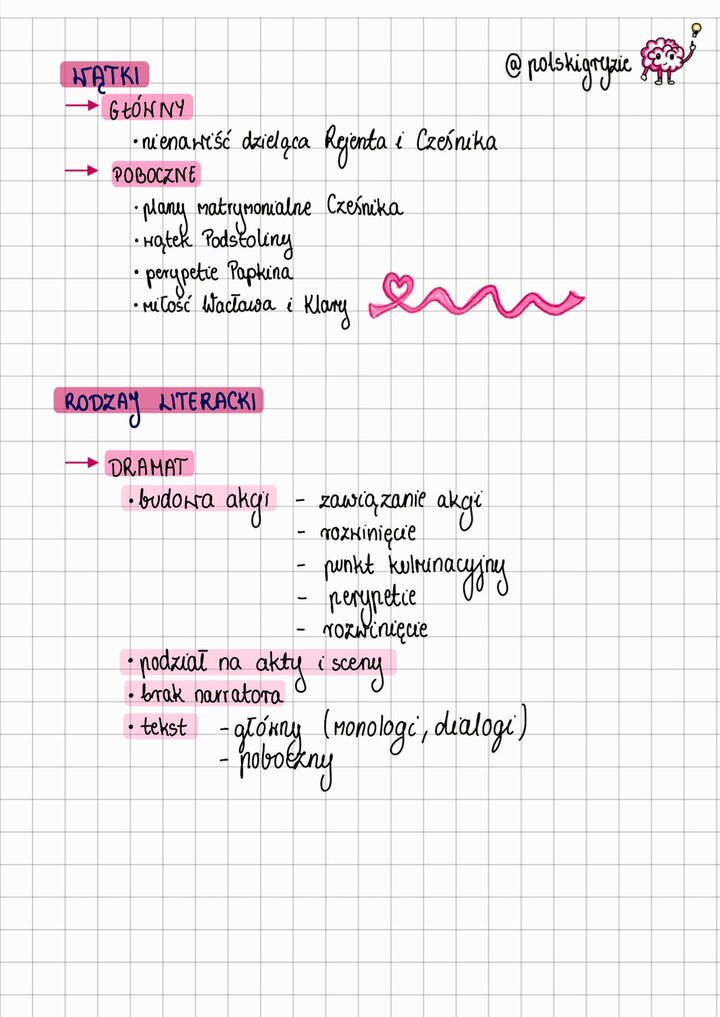 @polskigryzie
WĄTKI
→ GŁÓWNY
• nienawiść dzieląca Rejenta i Cześnika
→ POBOCZNE
• plany matrymonialne Cześnika
• wątek Podstoliny
• perypetie Papkina
• miłość Wacława i Klary
RODZAJ LITERACKI
→ DRAMAT
• budowa akcji - zawiązanie akcji
- rozwinięcie
- punkt kulminacyjny
- perypetie
- rozwinięcie
• podział na akty i sceny
• brak narratora
• tekst - główny (monologi, dialogi)
- poboczny